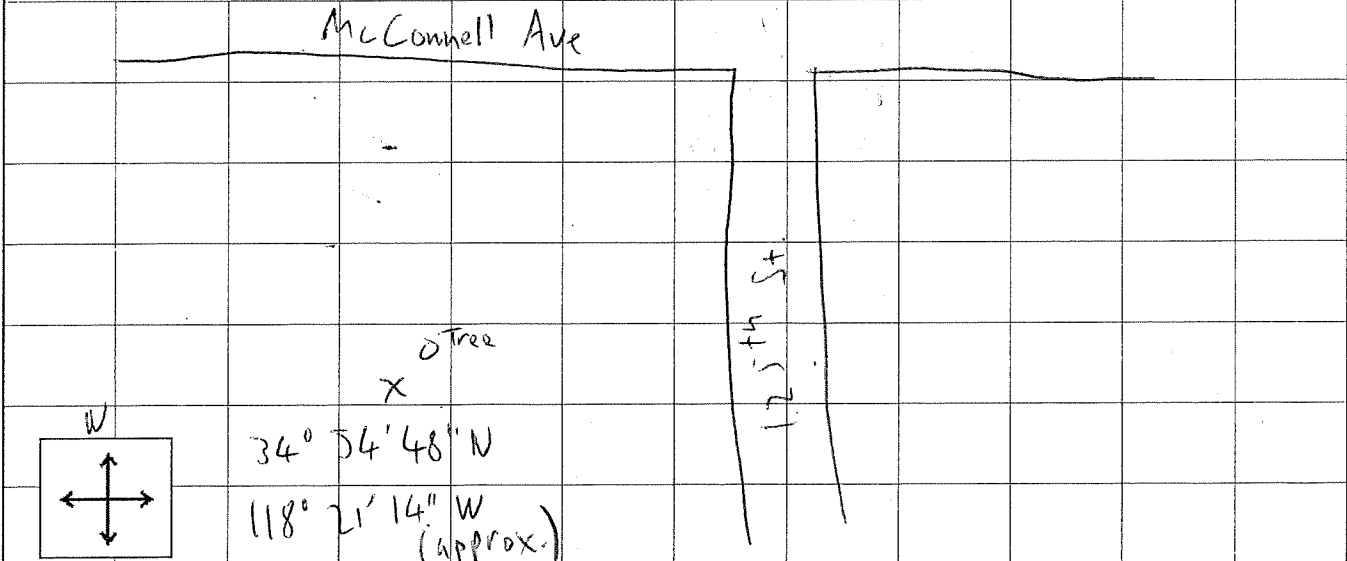 McConnell Ave
125th St.
Tree
X
W
34° 54' 48" N
118° 21' 14" W
(approx.)